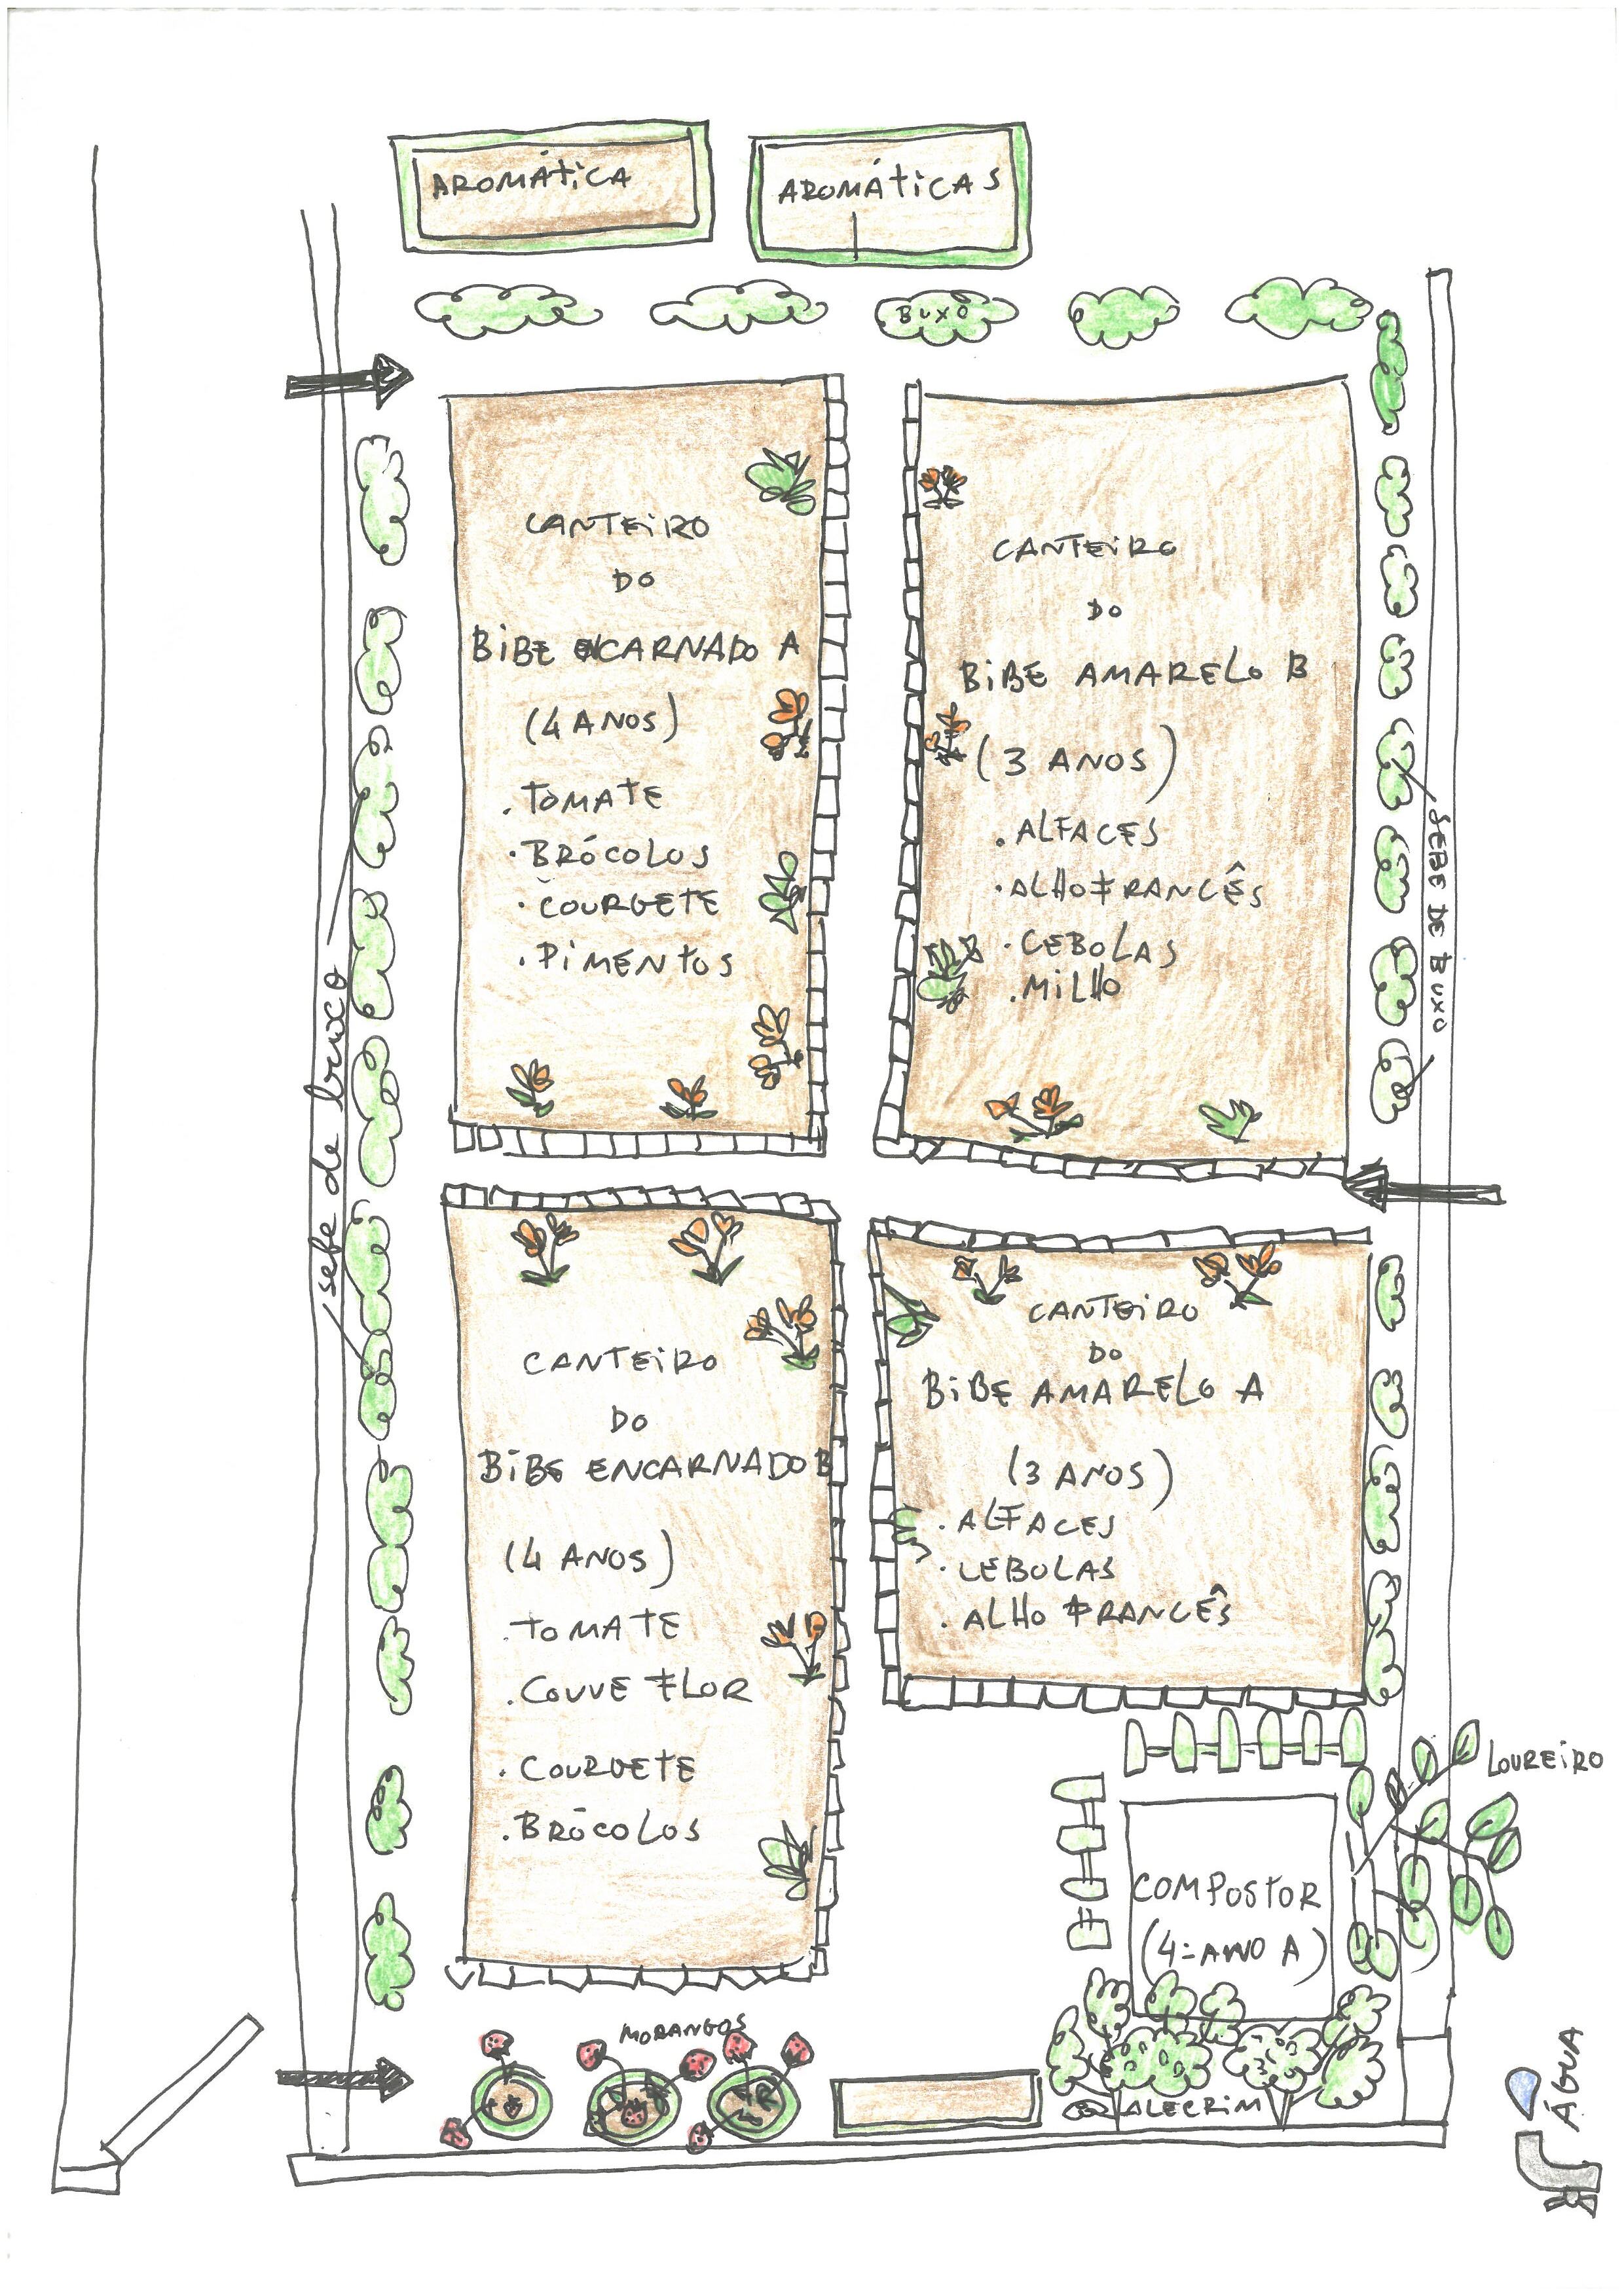 AROMÁTICA
AROMÁTICAS
BUXO
CANTEIRO
DO
BIBE ENCARNADO A
(4 ANOS)
. TOMATE
. BRÓCOLOS
. COURGETE
. PIMENTOS
CANTEIRO
DO
BIBE AMARELO B
(3 ANOS)
. ALFACES
. ALHO FRANCÊS
. CEBOLAS
. MILHO
SEBE DE BUXO
sebe de buxo
CANTEIRO
DO
BIBE ENCARNADO B
(4 ANOS)
. TOMATE
. COUVE FLOR
. COURGETE
. BRÓCOLOS
CANTEIRO
DO
BIBE AMARELO A
(3 ANOS)
. ALFACES
. CEBOLAS
. ALHO FRANCÊS
LOUREIRO
COMPOSTOR
(4º ANO A)
MORANGOS
ALECRIM
ÁGUA